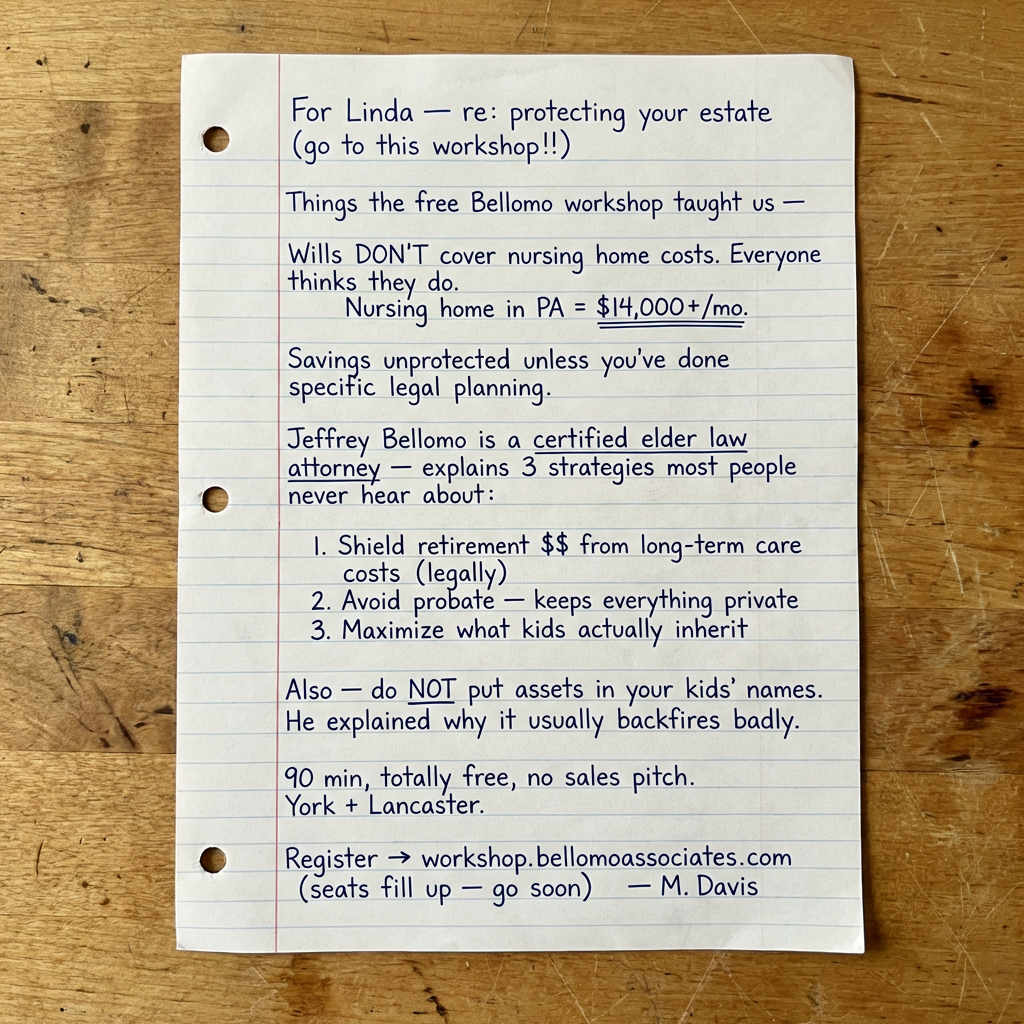 For Linda — re: protecting your estate
(go to this workshop!!)
Things the free Bellomo workshop taught us —
Wills DON'T cover nursing home costs. Everyone
thinks they do.
Nursing home in PA = $14,000+/mo.
Savings unprotected unless you've done
specific legal planning.
Jeffrey Bellomo is a certified elder law
attorney — explains 3 strategies most people
never hear about:
1. Shield retirement $$ from long-term care
costs (legally)
2. Avoid probate — keeps everything private
3. Maximize what kids actually inherit
Also — do NOT put assets in your kids' names.
He explained why it usually backfires badly.
90 min, totally free, no sales pitch.
York + Lancaster.
Register → workshop.bellomoassociates.com
(seats fill up — go soon) — M. Davis